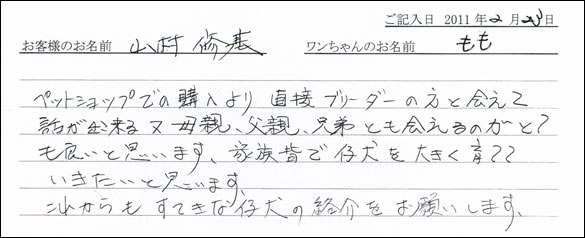 ご記入日 2011年2月28日
お客様のお名前 山村修基 ワンちゃんのお名前 もも
ペットショップでの購入より 直接ブリーダーの方と会えて
話が出来る又母親、父親、兄弟とも会えるのがとて
も良いと思います、家族皆で仔犬を大きく育てて
いきたいと思います、
これからも すてきな仔犬の紹介をお願いします、